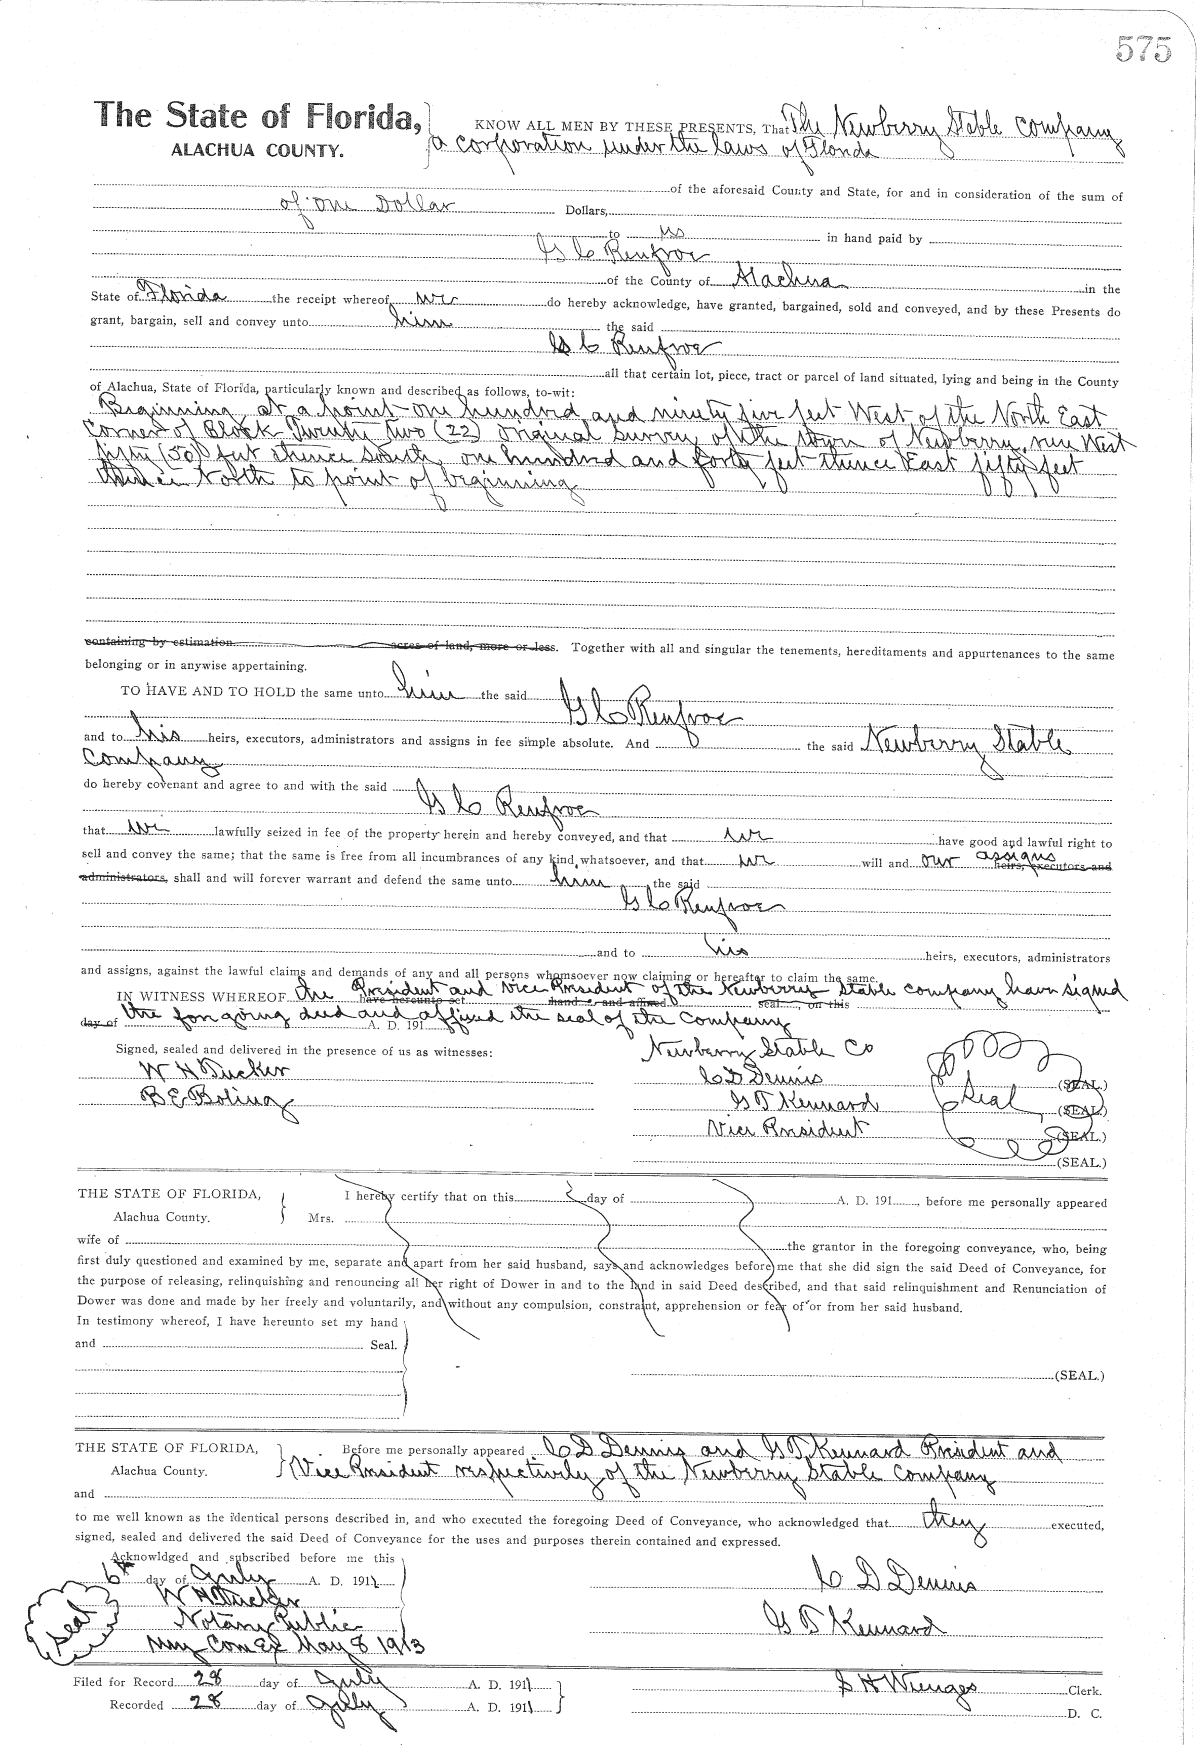 575
The State of Florida,
ALACHUA COUNTY.
KNOW ALL MEN BY THESE PRESENTS, That The Newberry Stable Company
a corporation under the laws of Florida
of the aforesaid County and State, for and in consideration of the sum of
of one Dollar Dollars,
to us in hand paid by
G C Renfroe
of the County of Alachua in the
State of Florida the receipt whereof we do hereby acknowledge, have granted, bargained, sold and conveyed, and by these Presents do
grant, bargain, sell and convey unto him the said
G C Renfroe
all that certain lot, piece, tract or parcel of land situated, lying and being in the County
of Alachua, State of Florida, particularly known and described as follows, to-wit:
Beginning at a point one hundred and ninety five feet West of the North East
Corner of Block Twenty two (22) original survey of the town of Newberry, run West
fifty (50) feet thence South one hundred and forty feet thence East fifty feet
thence North to point of beginning
containing by estimation acres of land, more or less. Together with all and singular the tenements, hereditaments and appurtenances to the same
belonging or in anywise appertaining.
TO HAVE AND TO HOLD the same unto him the said
G C Renfroe
and to his heirs, executors, administrators and assigns in fee simple absolute. And the said Newberry Stable
Company
do hereby covenant and agree to and with the said
G C Renfroe
that we lawfully seized in fee of the property herein and hereby conveyed, and that we have good and lawful right to
sell and convey the same; that the same is free from all incumbrances of any kind whatsoever, and that we will and our assigns heirs, executors and
administrators, shall and will forever warrant and defend the same unto him the said
G C Renfroe
and to his heirs, executors, administrators
and assigns, against the lawful claims and demands of any and all persons whomsoever now claiming or hereafter to claim the same.
IN WITNESS WHEREOF the President and Vice President of the Newberry Stable Company have signed
have hereunto set hand s and affixed seal , on this
the foregoing deed and affixed the seal of the Company
day of A. D. 191
Signed, sealed and delivered in the presence of us as witnesses:
Newberry Stable Co
W H Tucker
C D Dennis (SEAL.)
B E Boling
G T Kennard Seal (SEAL.)
Vice President (SEAL.)
(SEAL.)
THE STATE OF FLORIDA, I hereby certify that on this day of A. D. 191 , before me personally appeared
Alachua County. Mrs.
wife of the grantor in the foregoing conveyance, who, being
first duly questioned and examined by me, separate and apart from her said husband, says and acknowledges before me that she did sign the said Deed of Conveyance, for
the purpose of releasing, relinquishing and renouncing all her right of Dower in and to the land in said Deed described, and that said relinquishment and Renunciation of
Dower was done and made by her freely and voluntarily, and without any compulsion, constraint, apprehension or fear of or from her said husband.
In testimony whereof, I have hereunto set my hand
and Seal.
(SEAL.)
THE STATE OF FLORIDA, Before me personally appeared C D Dennis and G T Kennard President and
Alachua County. Vice President respectively of the Newberry Stable Company
and
to me well known as the identical persons described in, and who executed the foregoing Deed of Conveyance, who acknowledged that they executed,
signed, sealed and delivered the said Deed of Conveyance for the uses and purposes therein contained and expressed.
Acknowldged and subscribed before me this
6th day of July A. D. 1911
C D Dennis
W H Tucker
Seal Notary Public
G T Kennard
My Com Ex May 8 1913
Filed for Record 28 day of July A. D. 1911
S H Wienges Clerk.
Recorded 28 day of July A. D. 1911
D. C.